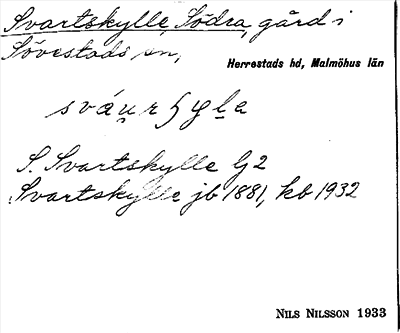 Svartskylle, Södra, gård i
Sövestads sn,
Herrestads hd, Malmöhus län
S. Svartskylle G2
Svartskylle jb 1881, kb 1932
NILS NILSSON 1933